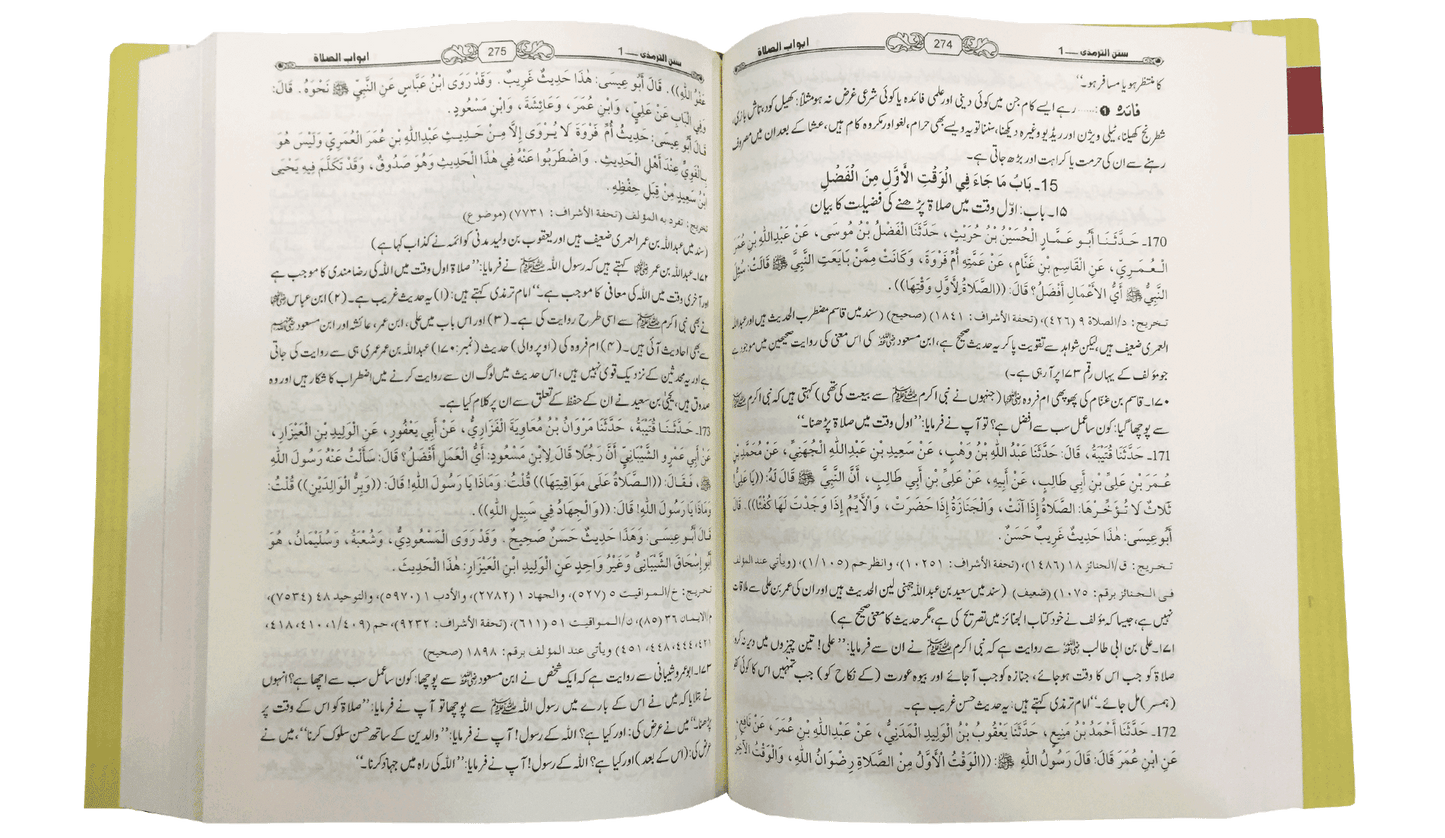 سنن الترمذی — 1
274
ابواب الصلاة
کا منتظر ہو یا مسافر ہو۔‘‘
فائدہ ❶:...... رہے ایسے کام جن میں کوئی دینی اور علمی فائدہ یا کوئی شرعی غرض نہ ہو مثلاً: کھیل کود، تاش بازی،
شطرنج کھیلنا، ٹیلی ویژن اور ریڈیو وغیرہ دیکھنا، سننا تو یہ ویسے بھی حرام، لغو اور مکروہ کام ہیں، عشا کے بعد ان میں مصروف
رہنے سے ان کی حرمت یا کراہت اور بڑھ جاتی ہے۔
15- بَابُ مَا جَاءَ فِي الْوَقْتِ الأَوَّلِ مِنَ الْفَضْلِ
۱۵۔ باب: اوّل وقت میں صلاۃ پڑھنے کی فضیلت کا بیان
170- حَدَّثَنَا أَبُو عَمَّارٍ الْحُسَيْنُ بْنُ حُرَيْثٍ، حَدَّثَنَا الْفَضْلُ بْنُ مُوسَى، عَنْ عَبْدِاللّٰهِ بْنِ عُمَرَ
الْعُمَرِيِّ، عَنِ الْقَاسِمِ بْنِ غَنَّامٍ، عَنْ عَمَّتِهِ أُمِّ فَرْوَةَ، وَكَانَتْ مِمَّنْ بَايَعَتِ النَّبِيَّ ﷺ قَالَتْ: سُئِلَ
النَّبِيُّ ﷺ أَيُّ الأَعْمَالِ أَفْضَلُ؟ قَالَ: ((الصَّلَاةُ لِأَوَّلِ وَقْتِهَا)).
تخريج: د/الصلاة ۹ (۴۲۶)، (تحفة الأشراف: ۱۸۴۱) (صحيح) (سند میں قاسم مضطرب الحدیث ہیں اور عبداللہ
العمری ضعیف ہیں، لیکن شواہد سے تقویت پا کر یہ حدیث صحیح ہے، ابن مسعود رضی اللہ عنہ کی اس معنی کی روایت صحیحین میں موجود ہے
جو مؤلف کے یہاں رقم ۱۷۳ پر آ رہی ہے۔)
۱۷۰۔ قاسم بن غنام کی پھوپھی ام فروہ رضی اللہ عنہا (جنہوں نے نبی اکرم ﷺ سے بیعت کی تھی) کہتی ہیں کہ نبی اکرم ﷺ
سے پوچھا گیا: کون سا عمل سب سے افضل ہے؟ تو آپ نے فرمایا: ’’اول وقت میں صلاۃ پڑھنا۔‘‘
171- حَدَّثَنَا قُتَيْبَةُ، قَالَ: حَدَّثَنَا عَبْدُ اللّٰهِ بْنُ وَهْبٍ، عَنْ سَعِيدِ بْنِ عَبْدِاللّٰهِ الْجُهَنِيِّ، عَنْ مُحَمَّدِ بْنِ
عُمَرَ بْنِ عَلِيِّ بْنِ أَبِي طَالِبٍ، عَنْ أَبِيهِ، عَنْ عَلِيِّ بْنِ أَبِي طَالِبٍ، أَنَّ النَّبِيَّ ﷺ قَالَ لَهُ: ((يَا عَلِيُّ!
ثَلَاثٌ لَا تُؤَخِّرْهَا: الصَّلَاةُ إِذَا آنَتْ، وَالْجَنَازَةُ إِذَا حَضَرَتْ، وَالأَيِّمُ إِذَا وَجَدْتَ لَهَا كُفْئًا)). قَالَ
أَبُو عِيسَى: هَذَا حَدِيثٌ غَرِيبٌ حَسَنٌ.
تخريج: ق/الجنائز ۱۸ (۱۴۸۶)، (تحفة الأشراف: ۱۰۲۵۱)، وانظر حم (۱/۱۰۵)، (ويأتي عند المؤلف
في الجنائز برقم: ۱۰۷۵) (ضعيف) (سند میں سعید بن عبداللہ جہنی لین الحدیث ہیں اور ان کی عمر بن علی سے ملاقات
نہیں ہے، جیسا کہ مؤلف نے خود کتاب الجنائز میں تصریح کی ہے، مگر حدیث کا معنی صحیح ہے)
۱۷۱۔ علی بن ابی طالب رضی اللہ عنہ سے روایت ہے کہ نبی اکرم ﷺ نے ان سے فرمایا: ’’علی! تین چیزوں میں دیر نہ کرو:
صلاۃ کو جب اس کا وقت ہو جائے، جنازہ کو جب آ جائے اور بیوہ عورت (کے نکاح کو) جب تمہیں اس کا کوئی کفو
(ہمسر) مل جائے۔‘‘ امام ترمذی کہتے ہیں: یہ حدیث حسن غریب ہے۔
172- حَدَّثَنَا أَحْمَدُ بْنُ مَنِيعٍ، حَدَّثَنَا يَعْقُوبُ بْنُ الْوَلِيدِ الْمَدَنِيُّ، عَنْ عَبْدِاللّٰهِ بْنِ عُمَرَ، عَنْ نَافِعٍ،
عَنِ ابْنِ عُمَرَ قَالَ: قَالَ رَسُولُ اللّٰهِ ﷺ: ((الْوَقْتُ الأَوَّلُ مِنَ الصَّلَاةِ رِضْوَانُ اللّٰهِ، وَالْوَقْتُ الآخِرُ
سنن الترمذی — 1
275
ابواب الصلاة
عَفْوُ اللّٰهِ)). قَالَ أَبُو عِيسَى: هَذَا حَدِيثٌ غَرِيبٌ. وَقَدْ رَوَى ابْنُ عَبَّاسٍ عَنِ النَّبِيِّ ﷺ نَحْوَهُ. قَالَ:
وَفِي الْبَابِ عَنْ عَلِيٍّ، وَابْنِ عُمَرَ، وَعَائِشَةَ، وَابْنِ مَسْعُودٍ.
قَالَ أَبُو عِيسَى: حَدِيثُ أُمِّ فَرْوَةَ لَا يُرْوَى إِلَّا مِنْ حَدِيثِ عَبْدِاللّٰهِ بْنِ عُمَرَ الْعُمَرِيِّ وَلَيْسَ هُوَ
بِالْقَوِيِّ عِنْدَ أَهْلِ الْحَدِيثِ. وَاضْطَرَبُوا عَنْهُ فِي هَذَا الْحَدِيثِ وَهُوَ صَدُوقٌ، وَقَدْ تَكَلَّمَ فِيهِ يَحْيَى
بْنُ سَعِيدٍ مِنْ قِبَلِ حِفْظِهِ.
تخريج: تفرد به المؤلف (تحفة الأشراف: ۷۷۳۱) (موضوع)
(سند میں عبداللہ بن عمر العمری ضعیف ہیں اور یعقوب بن ولید مدنی کو ائمہ نے کذاب کہا ہے)
۱۷۲۔ عبداللہ بن عمر رضی اللہ عنہما کہتے ہیں کہ رسول اللہ ﷺ نے فرمایا: ’’صلاۃ اول وقت میں اللہ کی رضا مندی کا موجب ہے
اور آخری وقت میں اللہ کی معافی کا موجب ہے۔‘‘ امام ترمذی کہتے ہیں: (۱) یہ حدیث غریب ہے۔ (۲) ابن عباس رضی اللہ عنہما
نے بھی نبی اکرم ﷺ سے اسی طرح روایت کی ہے۔ (۳) اور اس باب میں علی، ابن عمر، عائشہ اور ابن مسعود رضی اللہ عنہم
سے بھی احادیث آئی ہیں۔ (۴) ام فروہ کی (اوپر والی) حدیث (نمبر: ۱۷۰) عبداللہ بن عمر عمری ہی سے روایت کی جاتی
ہے اور یہ محدثین کے نزدیک قوی نہیں ہیں، اس حدیث میں لوگ ان سے روایت کرنے میں اضطراب کا شکار ہیں اور وہ
صدوق ہیں، یحییٰ بن سعید نے ان کے حفظ کے تعلق سے ان پر کلام کیا ہے۔
173- حَدَّثَنَا قُتَيْبَةُ، حَدَّثَنَا مَرْوَانُ بْنُ مُعَاوِيَةَ الْفَزَارِيُّ، عَنْ أَبِي يَعْفُورٍ، عَنِ الْوَلِيدِ بْنِ الْعَيْزَارِ،
عَنْ أَبِي عَمْرٍو الشَّيْبَانِيِّ أَنَّ رَجُلًا قَالَ لِابْنِ مَسْعُودٍ: أَيُّ الْعَمَلِ أَفْضَلُ؟ قَالَ: سَأَلْتُ عَنْهُ رَسُولَ اللّٰهِ
ﷺ، فَقَالَ: ((الصَّلَاةُ عَلَى مَوَاقِيتِهَا)) قُلْتُ: وَمَاذَا يَا رَسُولَ اللّٰهِ! قَالَ: ((وَبِرُّ الْوَالِدَيْنِ)) قُلْتُ:
وَمَاذَا يَا رَسُولَ اللّٰهِ! قَالَ: ((وَالْجِهَادُ فِي سَبِيلِ اللّٰهِ)).
قَالَ أَبُو عِيسَى: وَهَذَا حَدِيثٌ حَسَنٌ صَحِيحٌ. وَقَدْ رَوَى الْمَسْعُودِيُّ، وَشُعْبَةُ، وَسُلَيْمَانُ، هُوَ
أَبُو إِسْحَاقَ الشَّيْبَانِيُّ وَغَيْرُ وَاحِدٍ عَنِ الْوَلِيدِ ابْنِ الْعَيْزَارِ: هَذَا الْحَدِيثَ.
تخريج: خ/المواقيت ۵ (۵۲۷)، والجهاد ۱ (۲۷۸۲)، والأدب ۱ (۵۹۷۰)، والتوحيد ۴۸ (۷۵۳۴)،
م/الإيمان ۳۶ (۸۵)، ن/المواقيت ۵۱ (۶۱۱)، (تحفة الأشراف: ۹۲۳۲)، حم (۱/۴۰۹، ۴۱۰، ۴۱۸،
۴۲۱، ۴۴۴، ۴۴۸، ۴۵۱) ويأتي عند المؤلف برقم: ۱۸۹۸ (صحيح)
۱۷۳۔ ابوعمرو شیبانی سے روایت ہے کہ ایک شخص نے ابن مسعود رضی اللہ عنہ سے پوچھا: کون سا عمل سب سے اچھا ہے؟ انہوں
نے بتلایا کہ میں نے اس کے بارے میں رسول اللہ ﷺ سے پوچھا تو آپ نے فرمایا: ’’صلاۃ کو اس کے وقت پر
پڑھنا۔‘‘ میں نے عرض کی: اور کیا ہے؟ اللہ کے رسول! آپ نے فرمایا: ’’والدین کے ساتھ حسن سلوک کرنا‘‘، میں نے
عرض کی: (اس کے بعد) اور کیا ہے؟ اللہ کے رسول! آپ نے فرمایا: ’’اللہ کی راہ میں جہاد کرنا۔‘‘